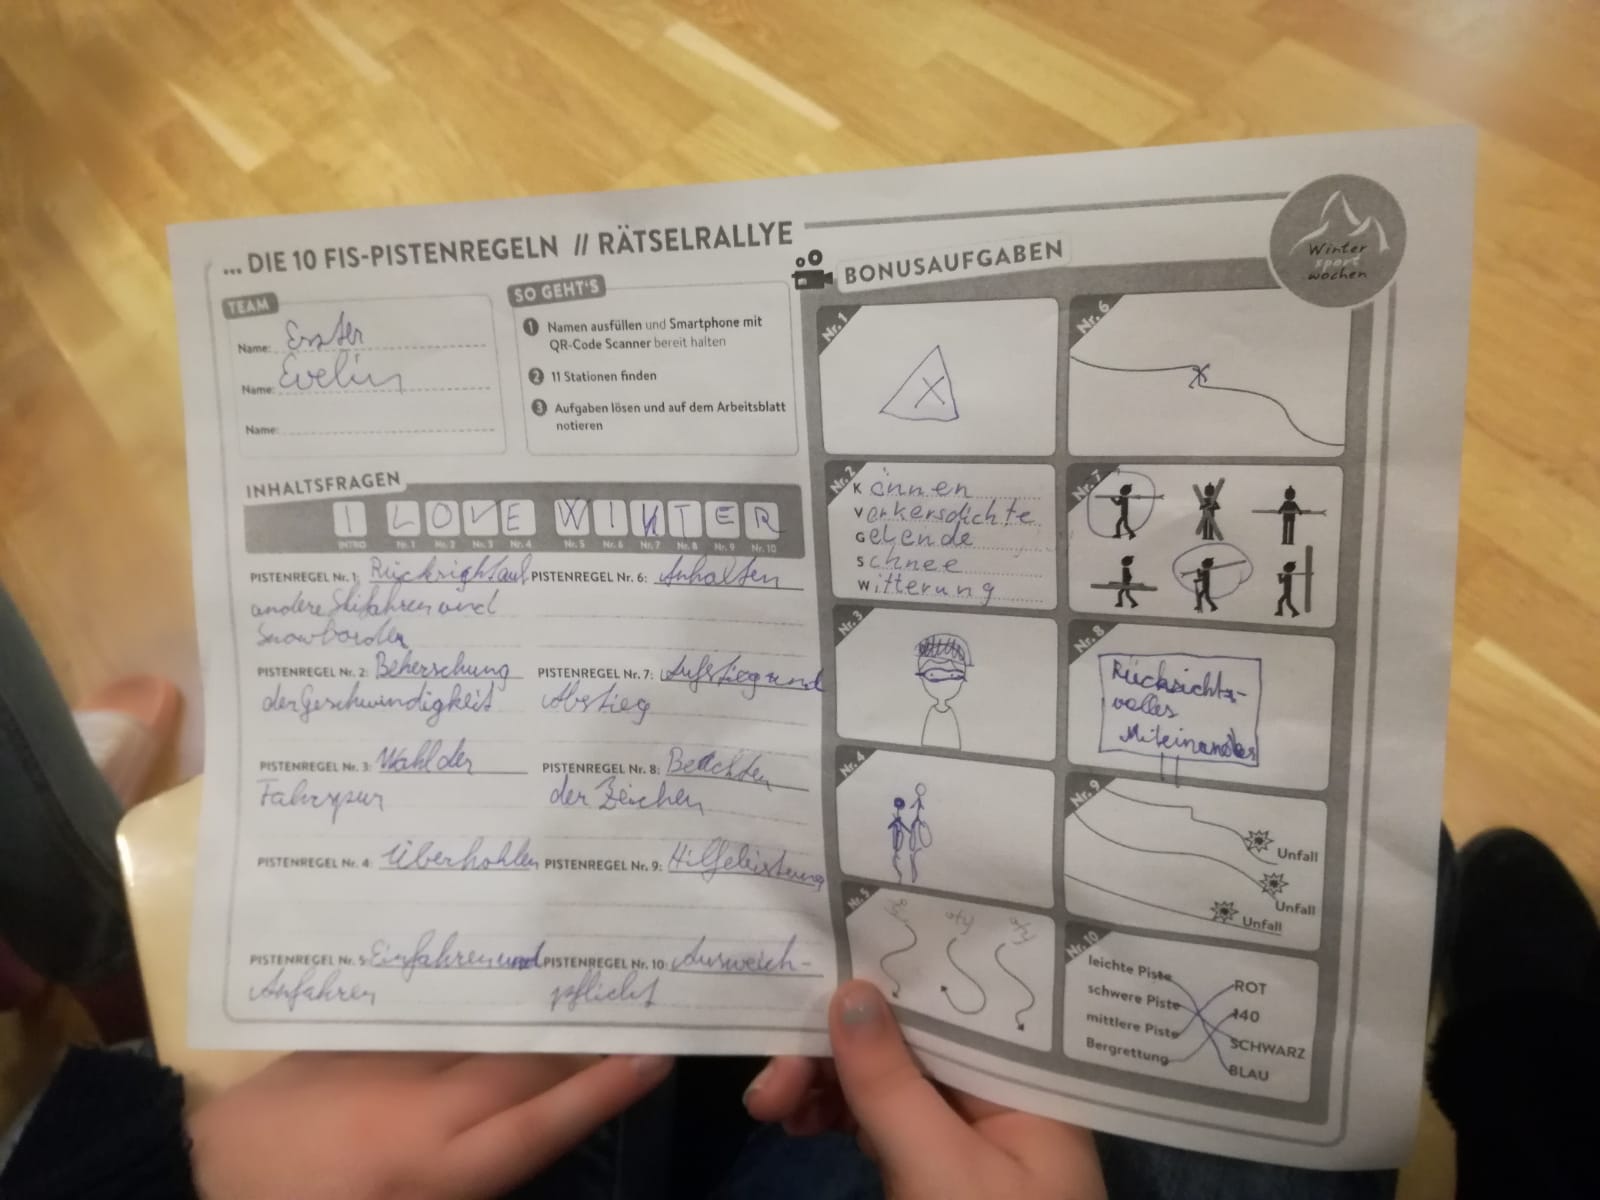 ... DIE 10 FIS-PISTENREGELN // RÄTSELRALLYE
TEAM
Name: Eszter
Name: Evelin
Name:
SO GEHT'S
1 Namen ausfüllen und Smartphone mit
QR-Code Scanner bereit halten
2 11 Stationen finden
3 Aufgaben lösen und auf dem Arbeitsblatt
notieren
INHALTSFRAGEN
I LOVE WINTER
INTRO Nr. 1 Nr. 2 Nr. 3 Nr. 4 Nr. 5 Nr. 6 Nr. 7 Nr. 8 Nr. 9 Nr. 10
PISTENREGEL Nr. 1: Rücksightauf
andere Skifahren und
Snowborder
PISTENREGEL Nr. 2: Beherschung
der Geschwindigkeit
PISTENREGEL Nr. 3: Wahl der
Fahrspur
PISTENREGEL Nr. 4: Überhohlen
PISTENREGEL Nr. 5: Einfahren und
Anfahren
PISTENREGEL Nr. 6: Anhalten
PISTENREGEL Nr. 7: Aufstieg und
Abstieg
PISTENREGEL Nr. 8: Beachten
der Zeichen
PISTENREGEL Nr. 9: Hilfeleistung
PISTENREGEL Nr. 10: Ausweich-
pflicht
BONUSAUFGABEN
Winter
sport
wochen
Nr. 1
Nr. 2
Können
Verkersdichte
Gelende
Schnee
Witterung
Nr. 3
Nr. 4
Nr. 5
Nr. 6
Nr. 7
Nr. 8
Rücksichts-
volles
Miteinander
Nr. 9
Unfall
Unfall
Unfall
Nr. 10
leichte Piste ROT
schwere Piste 140
mittlere Piste SCHWARZ
Bergrettung BLAU